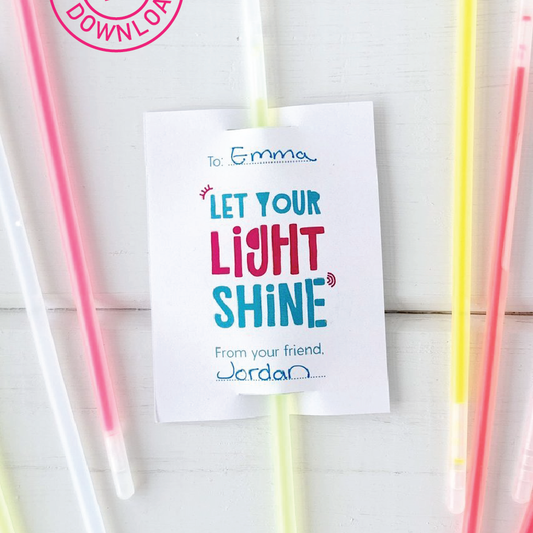 DOWNLOA
To: Emma
LET YOUR
LIGHT
SHINE
From your friend,
Jordan